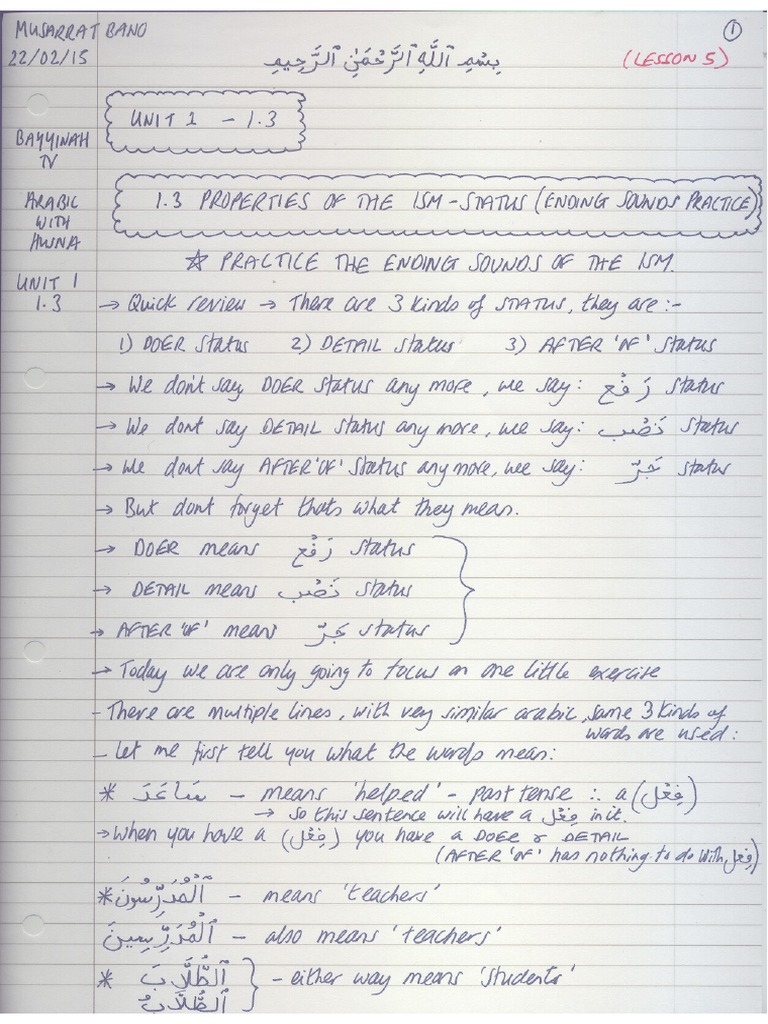 MUSARRAT BANO
22/02/15
1
بِسْمِ ٱللَّهِ ٱلرَّحْمَٰنِ ٱلرَّحِيمِ
(LESSON 5)
UNIT 1 - 1.3
BAYYINAH
TV
ARABIC
WITH
HUSNA
1.3 PROPERTIES OF THE ISM - STATUS (ENDING SOUNDS PRACTICE)
☆ PRACTICE THE ENDING SOUNDS OF THE ISM.
UNIT 1
1.3
→ Quick review → There are 3 kinds of STATUS, they are :-
1) DOER Status 2) DETAIL status 3) AFTER 'OF' Status
→ We don't say DOER Status any more, we say: رَفْع status
→ We dont say DETAIL status any more, we say: نَصْب status
→ We dont say AFTER 'OF' Status any more, we say: جَرّ status
→ But dont forget thats what they mean.
→ DOER means رَفْع status
→ DETAIL means نَصْب status
→ AFTER 'OF' means جَرّ status
→ Today we are only going to focus on one little exercise
- There are multiple lines, with very similar arabic, same 3 kinds of
words are used:
- Let me first tell you what the words mean:
* سَاعَدَ - means 'helped' - past tense ∴ a (فِعْل)
→ so this sentence will have a فِعْل in it.
→ When you have a (فِعْل) you have a DOER & DETAIL
(AFTER 'OF' has nothing to do with فِعْل)
* ٱلْمُدَرِّسُونَ - means 'teachers'
ٱلْمُدَرِّسِينَ - also means 'teachers'
* ٱلطُّلَّابَ } - either way means 'students'
ٱلطُّلَّابُ